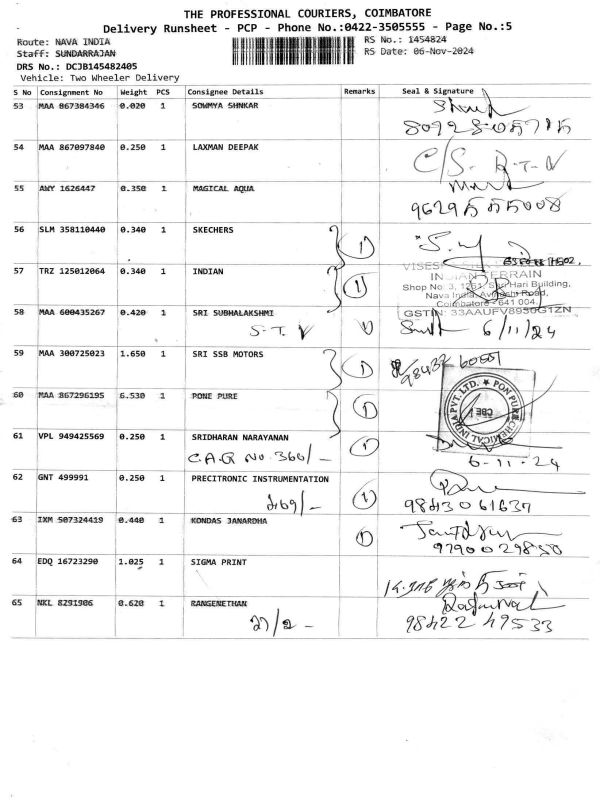 THE PROFESSIONAL COURIERS, COIMBATORE
Delivery Runsheet - PCP - Phone No.:0422-3505555 - Page No.:5
Route: NAVA INDIA
RS No.: 1454824
Staff: SUNDARRAJAN
RS Date: 06-Nov-2024
DRS No.: DCJB145482405
Vehicle: Two Wheeler Delivery
S No Consignment No Weight PCS Consignee Details Remarks Seal & Signature
53 MAA 867384346 0.020 1 SOWMYA SHNKAR
54 MAA 867097840 0.250 1 LAXMAN DEEPAK
C/S-
55 AWY 1626447 0.350 1 MAGICAL AQUA
56 SLM 358110440 0.340 1 SKECHERS 1
57 TRZ 125012064 0.340 1 INDIAN 1
INDIAN TERRAIN
Shop No. 3, 1261, Sri Hari Building,
Nava India, Avinashi Road,
Coimbatore - 641 004.
GSTIN: 33AAUFV8950G1ZN
58 MAA 600435267 0.420 1 SRI SUBHALAKSHMI
S.T.V 6/11/24
59 MAA 300725023 1.650 1 SRI SSB MOTORS 1
60 MAA 867296195 6.530 1 PONE PURE 1
PON PURE CHEMICAL INDIA PVT. LTD.
CBE
61 VPL 949425569 0.250 1 SRIDHARAN NARAYANAN 1
C.A.R No. 360/-
6-11-24
62 GNT 499991 0.250 1 PRECITRONIC INSTRUMENTATION 1
9843061637
63 IXM 507324419 0.440 1 KONDAS JANARDHA 1
64 EDQ 16723290 1.025 1 SIGMA PRINT
65 NKL 8291906 0.620 1 RANGENETHAN
98422 49533